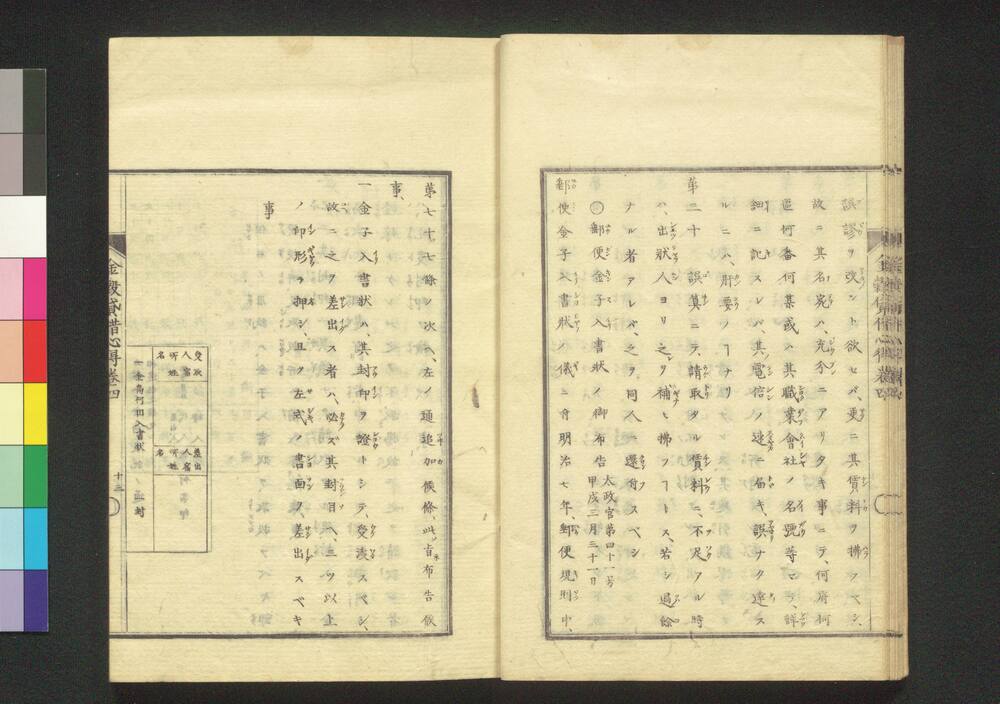 誤謬ヲ改ント欲セバ、更ニ其賃料ヲ拂フベシ、
故ニ其名宛ハ、充分ニアリタキ事ニテ、何府何
區何番何某或ハ其職業會社ノ名號等マデ、詳
細ニ記スレバ、其電信ノ速ニ届キ、誤ナク達ス
ルニハ、肝要ノヿナリ
第二十 誤算ニテ、請取タル賃料ニ、不足アル時
ハ、出狀人ヨリ之ヲ補ヒ拂フヿトス、若シ過餘
ナル者アレバ、之ヲ同人ニ還付スベシ
◎郵便金子入書狀ノ御布告 太政官第四十一号 甲戌三月三十一日
郵便金子入書狀ノ儀ニ付明治七年郵便規則中、
第七十七條ノ次ヘ、左ノ通追加候條、此旨布告候
事、
一金子入書狀ハ、其封印ヲ證トシテ、受渡スベシ、
故ニ之ヲ差出ス者ハ、必ズ其封目ヘ、三ツ以上
ノ印形ヲ押シ、且ク左式ノ書面ヲ、差出スベキ
事
受取人宿所姓名
差出人宿所姓名
金穀貸借心得卷四
十三